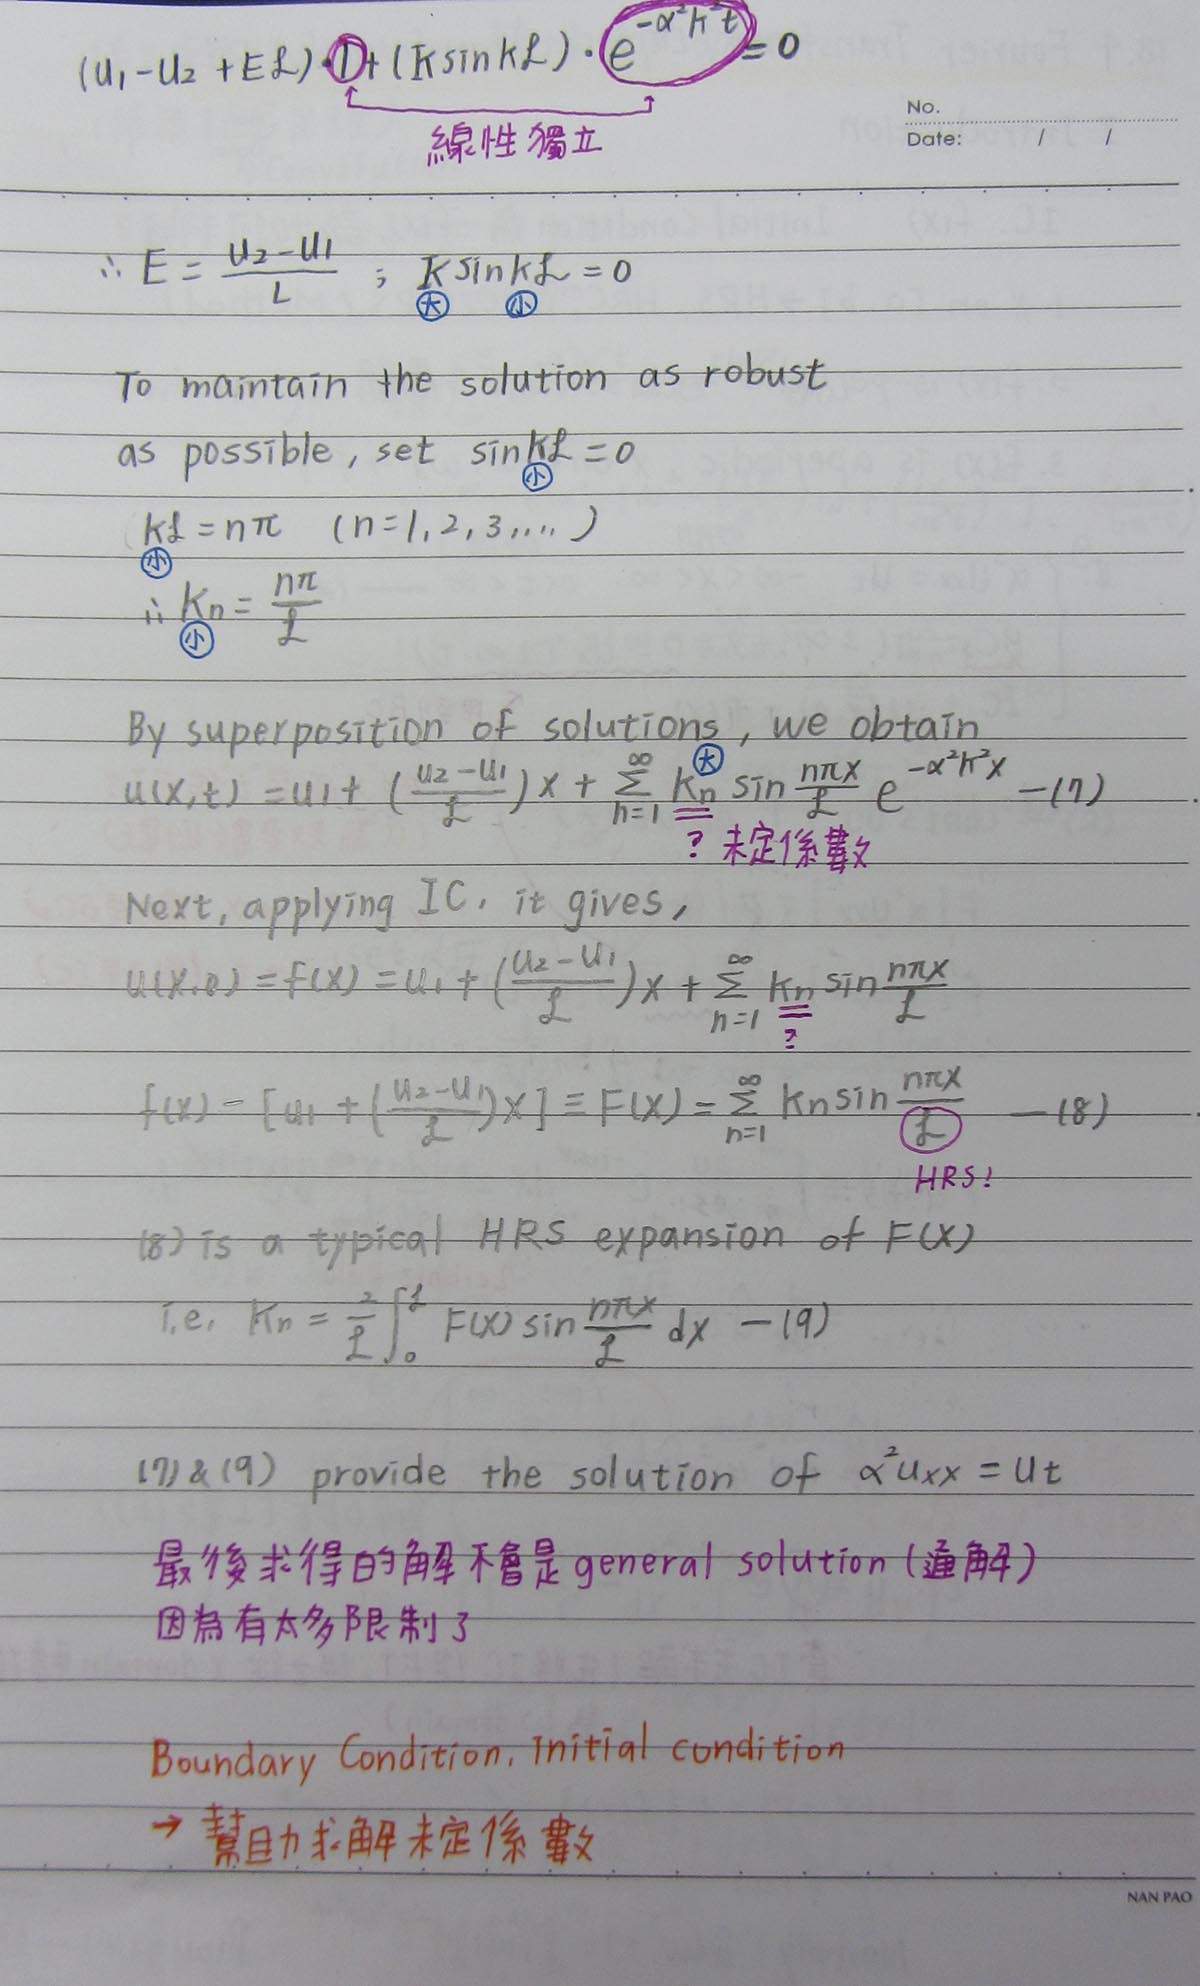 (u₁-u₂+Eℓ)·1+(K sin kℓ)·e^{-α²k²t}=0
線性獨立
No.
Date: / /
∴ E = (u₂-u₁)/L ; K sin kℓ = 0
大 小
To maintain the solution as robust
as possible, set sin kℓ = 0
小
kℓ = nπ (n=1,2,3,....)
小
∴ kn = nπ/ℓ
小
By superposition of solutions, we obtain
大
u(x,t) = u₁ + ((u₂-u₁)/ℓ)x + Σ_{n=1}^{∞} kn sin (nπx/ℓ) e^{-α²k²x} —(7)
? 未定係數
Next, applying IC, it gives,
u(x,0) = f(x) = u₁ + ((u₂-u₁)/ℓ)x + Σ_{n=1}^{∞} kn sin (nπx/ℓ)
?
f(x) - [u₁ + ((u₂-u₁)/ℓ)x] ≡ F(x) = Σ_{n=1}^{∞} kn sin (nπx/ℓ) —(8)
HRS!
(8) is a typical HRS expansion of F(x)
i.e. Kn = (2/ℓ) ∫₀^ℓ F(x) sin (nπx/ℓ) dx —(9)
(7) & (9) provide the solution of α²uxx = ut
最後求得的解不會是general solution(通解)
因為有太多限制了
Boundary Condition, Initial condition
→ 幫助求解未定係數
NAN PAO